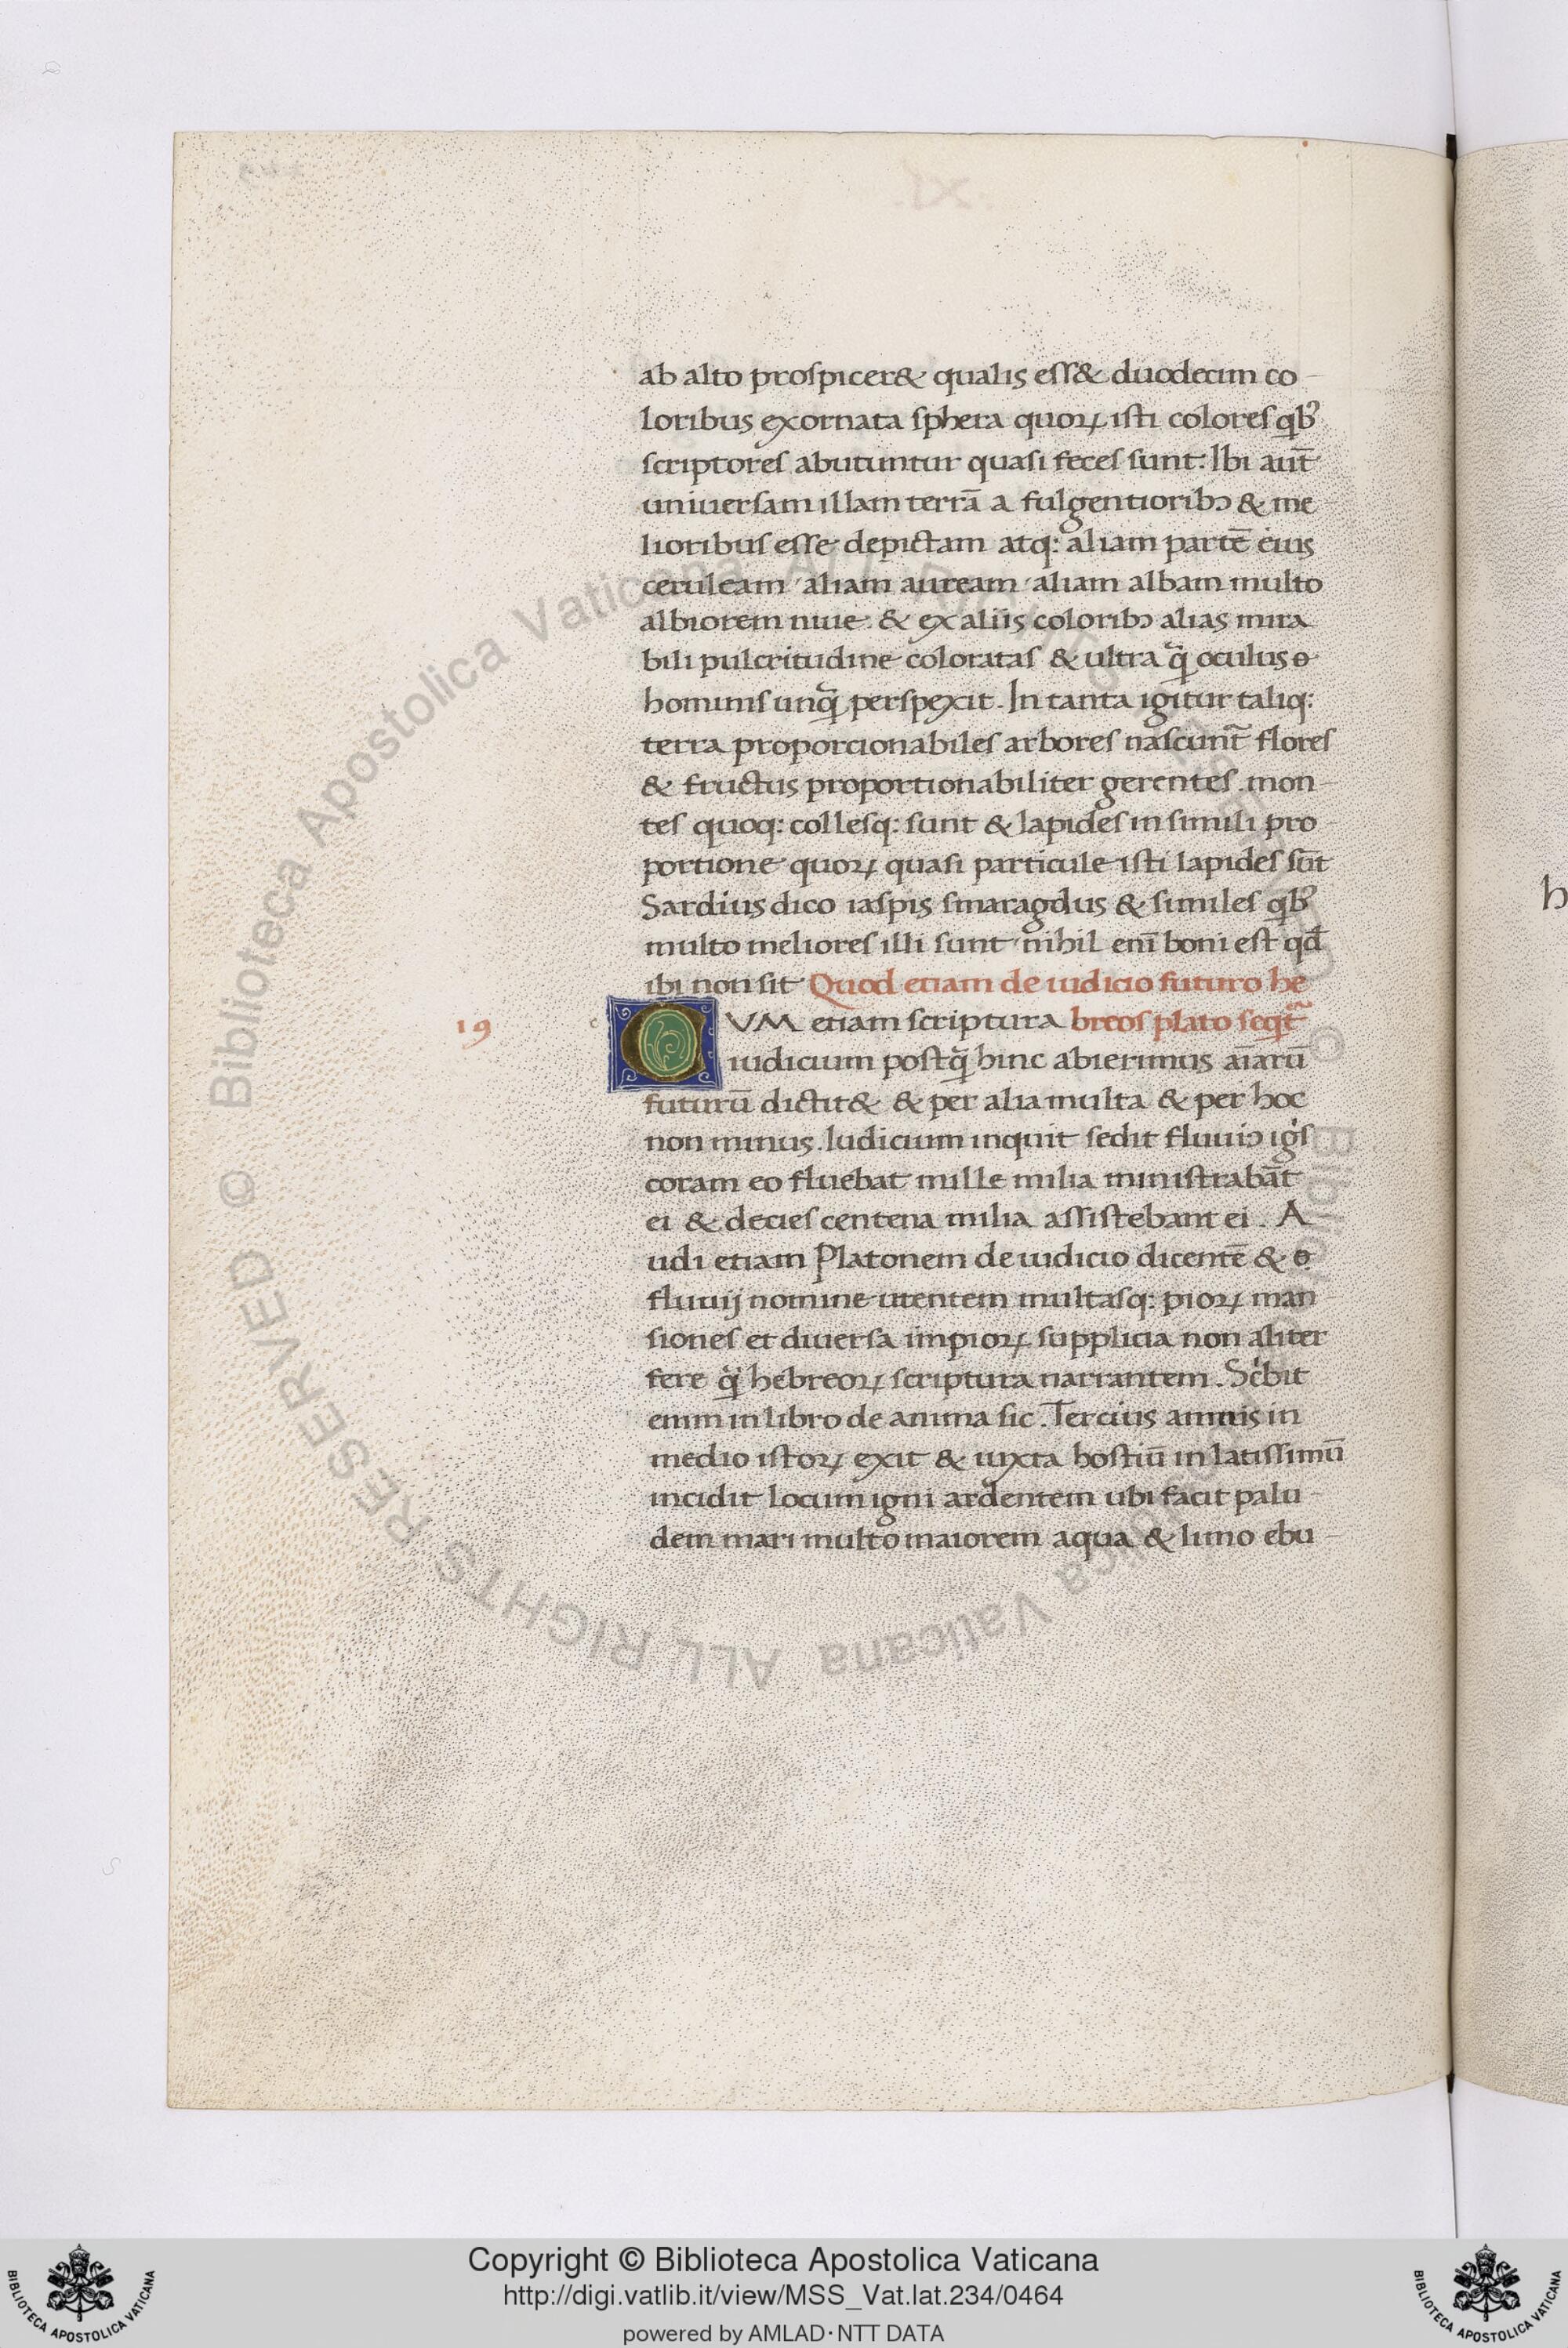 ab alto prospicer& qualis ess& duodecim co-
loribus exornata sphera quoꝝ isti colores qb᾽
scriptores abutuntur quasi feces sunt: Ibi aut̄
uniuersam illam terrā a fulgentioribꝰ & me-
lioribus esse depictam atq: aliam partē eius
ceruleam / aliam auream / aliam albam multo
albiorem niue. & ex aliis coloribꝰ alias mira
bili pulcritudine coloratas & ultra q̃ oculus
hominis unq̃ perspexit. In tanta igitur taliq:
terra proporcionabiles arbores nascunt̃ flores
& fructus proportionabiliter gerentes. mon-
tes quoq: collesq: sunt & lapides in simili pro-
portione quoꝝ quasi particule isti lapides sūt
Sardius dico iaspis smaragdus & similes qb᾽
multo meliores illi sunt / nihil eni̅ boni est qd̄
ibi non sit Quod etiam de iudicio futuro he
19 CVM etiam scriptura breos plato seqt̃
iudicium postq̃ hinc abierimus aīarū
futurū dictit& & per alia multa & per hoc
non minus. Iudicium inquit sedit fluuiꝰ igis
coram eo fluebat mille milia ministrabāt
ei & decies centena milia assistebant ei. A
udi etiam Platonem de iudicio dicentē &
fluuij nomine utentem multasq: pioꝝ man-
siones et diuersa impioꝝ supplicia non aliter
fere q̃ hebreoꝝ scriptura narrantem. Sc'bit
enim in libro de anima sic. Tercius amnis in
medio istoꝝ exit & iuxta hostiū in latissimū
incidit locum igni ardentem ubi facit palu-
dem mari multo maiorem aqua & limo ebu-
Copyright © Biblioteca Apostolica Vaticana
http://digi.vatlib.it/view/MSS_Vat.lat.234/0464
powered by AMLAD·NTT DATA
BIBLIOTECA APOSTOLICA VATICANA
BIBLIOTECA APOSTOLICA VATICANA
© Biblioteca Apostolica Vaticana ALL RIGHTS RESERVED
© Biblioteca Apostolica Vaticana ALL RIGHTS RESERVED